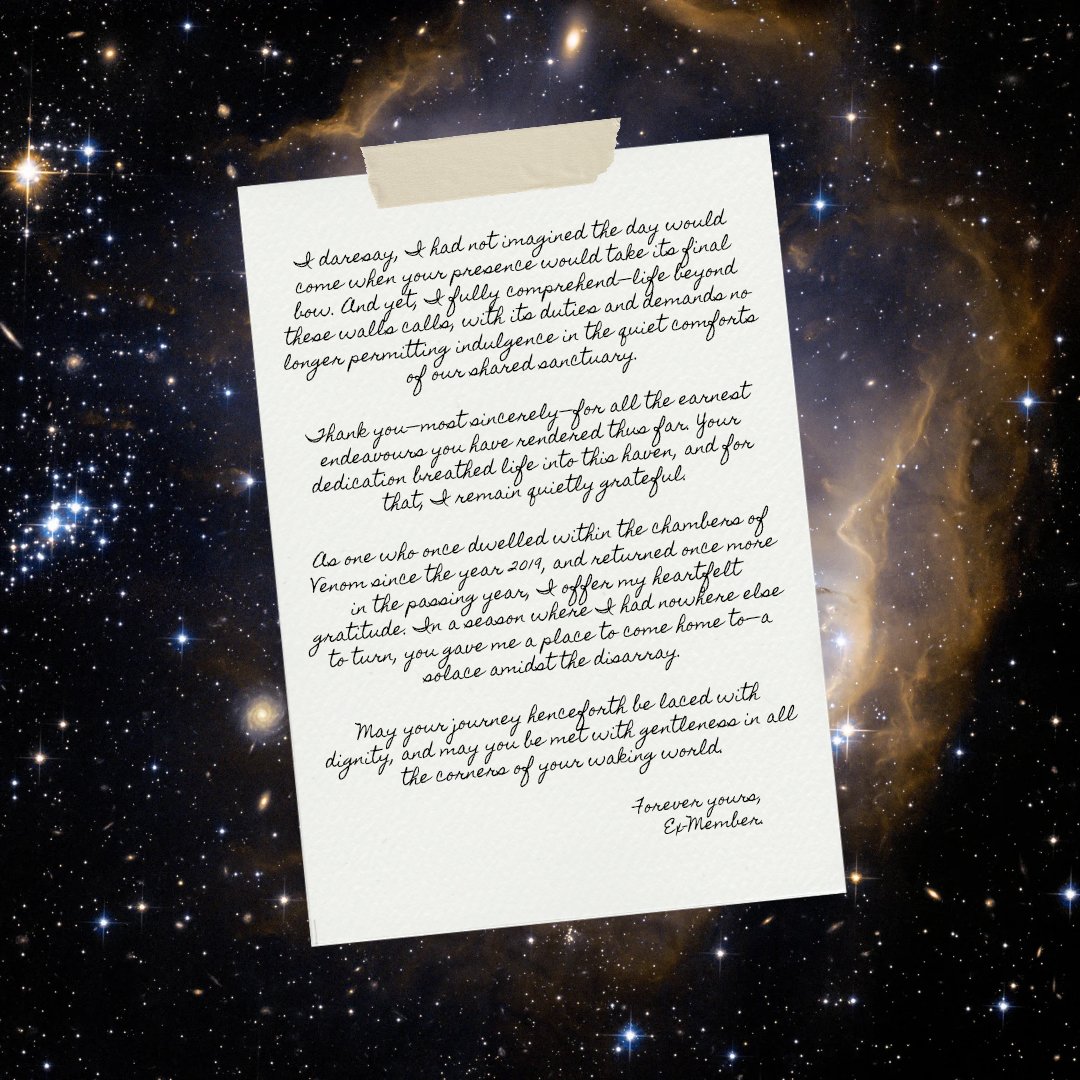 I daresay, I had not imagined the day would
come when your presence would take its final
bow. And yet, I fully comprehend—life beyond
these walls calls, with its duties and demands no
longer permitting indulgence in the quiet comforts
of our shared sanctuary.
Thank you—most sincerely—for all the earnest
endeavours you have rendered thus far. Your
dedication breathed life into this haven, and for
that, I remain quietly grateful.
As one who once dwelled within the chambers of
Venom since the year 2019, and returned once more
in the passing year, I offer my heartfelt
gratitude. In a season where I had nowhere else
to turn, you gave me a place to come home to—a
solace amidst the disarray.
May your journey henceforth be laced with
dignity, and may you be met with gentleness in all
the corners of your waking world.
Forever yours,
Ex-Member.